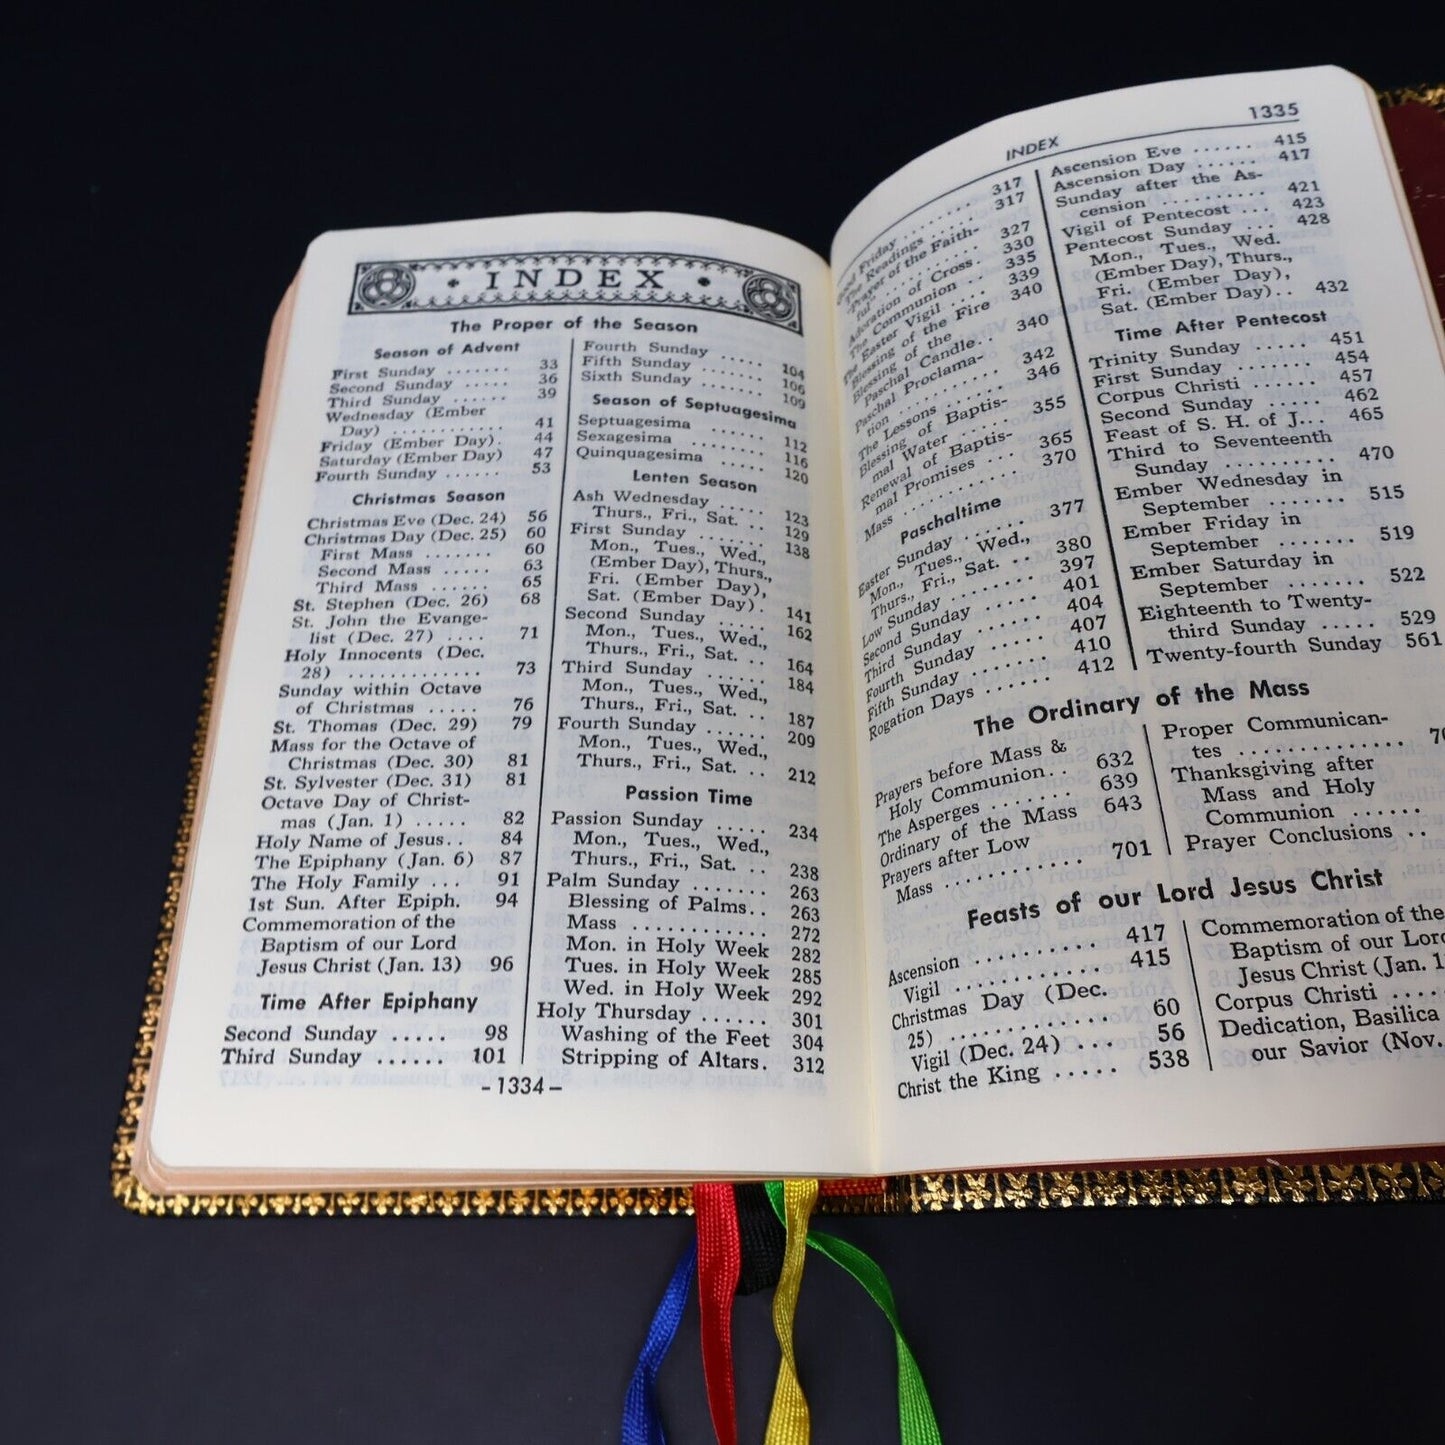 INDEX
The Proper of the Season
Season of Advent
First Sunday ....... 33
Second Sunday ..... 36
Third Sunday ...... 39
Wednesday (Ember
Day) ............ 41
Friday (Ember Day). 44
Saturday (Ember Day) 47
Fourth Sunday ..... 53
Christmas Season
Christmas Eve (Dec. 24) 56
Christmas Day (Dec. 25) 60
First Mass ....... 60
Second Mass ..... 63
Third Mass ...... 65
St. Stephen (Dec. 26) 68
St. John the Evange-
list (Dec. 27) .... 71
Holy Innocents (Dec.
28) ............. 73
Sunday within Octave
of Christmas ..... 76
St. Thomas (Dec. 29) 79
Mass for the Octave of
Christmas (Dec. 30) 81
St. Sylvester (Dec. 31) 81
Octave Day of Christ-
mas (Jan. 1) ..... 82
Holy Name of Jesus.. 84
The Epiphany (Jan. 6) 87
The Holy Family ... 91
1st Sun. After Epiph. 94
Commemoration of the
Baptism of our Lord
Jesus Christ (Jan. 13) 96
Time After Epiphany
Second Sunday ..... 98
Third Sunday ...... 101
Fourth Sunday ..... 104
Fifth Sunday ...... 106
Sixth Sunday ...... 109
Season of Septuagesima
Septuagesima ...... 112
Sexagesima ....... 116
Quinquagesima ..... 120
Lenten Season
Ash Wednesday ..... 123
Thurs., Fri., Sat. .. 129
First Sunday ....... 138
Mon., Tues., Wed.,
(Ember Day), Thurs.,
Fri. (Ember Day),
Sat. (Ember Day). 141
Second Sunday ..... 162
Mon., Tues., Wed.,
Thurs., Fri., Sat. .. 164
Third Sunday ...... 184
Mon., Tues., Wed.,
Thurs., Fri., Sat. .. 187
Fourth Sunday ...... 209
Mon., Tues., Wed.,
Thurs., Fri., Sat. .. 212
Passion Time
Passion Sunday ..... 234
Mon., Tues., Wed.,
Thurs., Fri., Sat. .. 238
Palm Sunday ....... 263
Blessing of Palms.. 263
Mass ............ 272
Mon. in Holy Week 282
Tues. in Holy Week 285
Wed. in Holy Week 292
Holy Thursday ...... 301
Washing of the Feet 304
Stripping of Altars. 312
-1334-
INDEX 1335
Good Friday ........ 317
The Readings ..... 317
"Prayer of the Faith-
ful" ........... 327
Adoration of Cross. 330
The Communion ... 335
The Easter Vigil .... 339
Blessing of the Fire 340
Blessing of the
Paschal Candle.. 340
Paschal Proclama-
tion ........... 342
The Lessons ...... 346
Blessing of Baptis-
mal Water ...... 355
Renewal of Baptis-
mal Promises ... 365
Mass ............ 370
Paschaltime
Easter Sunday ...... 377
Mon., Tues., Wed.,
Thurs., Fri., Sat. .. 380
Low Sunday ........ 397
Second Sunday ..... 401
Third Sunday ...... 404
Fourth Sunday ..... 407
Fifth Sunday ....... 410
Rogation Days ...... 412
Ascension Eve ...... 415
Ascension Day ...... 417
Sunday after the As-
cension .......... 421
Vigil of Pentecost ... 423
Pentecost Sunday ... 428
Mon., Tues., Wed.
(Ember Day), Thurs.,
Fri. (Ember Day),
Sat. (Ember Day).. 432
Time After Pentecost
Trinity Sunday ..... 451
First Sunday ....... 454
Corpus Christi ...... 457
Second Sunday ..... 462
Feast of S. H. of J... 465
Third to Seventeenth
Sunday .......... 470
Ember Wednesday in
September ....... 515
Ember Friday in
September ....... 519
Ember Saturday in
September ....... 522
Eighteenth to Twenty-
third Sunday ..... 529
Twenty-fourth Sunday 561
The Ordinary of the Mass
Prayers before Mass &
Holy Communion.. 632
The Asperges ....... 639
Ordinary of the Mass 643
Prayers after Low
Mass ........... 701
Proper Communican-
tes ..............
Thanksgiving after
Mass and Holy
Communion ......
Prayer Conclusions ..
Feasts of our Lord Jesus Christ
Ascension .......... 417
Vigil ........... 415
Christmas Day (Dec.
25) ............. 60
Vigil (Dec. 24) ... 56
Christ the King ..... 538
Commemoration of the
Baptism of our Lord
Jesus Christ (Jan.
Corpus Christi ....
Dedication, Basilica
our Savior (Nov.